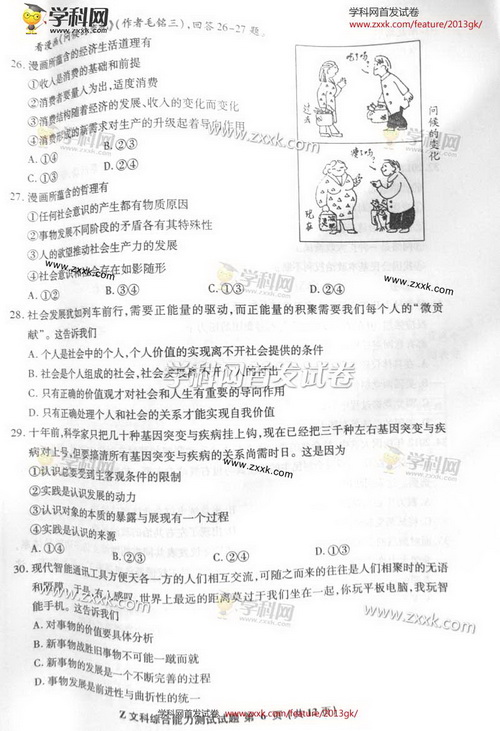 学科网首发试卷
www.zxxk.com/feature/2013gk/
看漫画《问候的变化》(作者毛铭三),回答26~27题。
26. 漫画所蕴含的经济生活道理有
①收入是消费的基础和前提
②消费者要量入为出,适度消费
③消费结构随着经济的发展、收入的变化而变化
④消费形成的新需求对生产的升级起着导向作用
A. ①③ B. ②③
C. ①④ D. ②④
过去
问候的变化
现在
27. 漫画所蕴含的哲理有
①任何社会意识的产生都有物质原因
②事物发展不同阶段的矛盾各有其特殊性
③人的欲望推动社会生产力的发展
④社会意识和社会存在如影随形
A. ①② B. ③④ C. ①③ D. ②④
28. 社会发展犹如列车前行,需要正能量的驱动,而正能量的积聚需要我们每个人的“微贡
献”。这告诉我们
A. 个人是社会中的个人,个人价值的实现离不开社会提供的条件
B. 社会是个人组成的社会,社会发展离不开个人的付出
C. 只有正确的价值观才对社会和人生有重要的导向作用
D. 只有正确处理个人和社会的关系才能实现自我价值
29. 十年前,科学家只把几十种基因突变与疾病挂上钩,现在已经把三千种左右基因突变与疾
病对上号,但要搞清所有基因突变与疾病的关系尚需时日。这是因为
①认识总要受到主客观条件的限制
②实践是认识发展的动力
③认识对象的本质的暴露与展现有一个过程
④实践是认识的来源
A. ①④ B. ②③ C. ②④ D. ①③
30. 现代智能通讯工具方便天各一方的人们相互交流,可随之而来的往往是人们相聚时的无语
和隔膜。于是,有人感叹,世界上最远的距离莫过于我们坐在一起,你玩平板电脑,我玩智
能手机。这告诉我们
A. 对事物的价值要具体分析
B. 新事物战胜旧事物不可能一蹴而就
C. 新事物的发展是一个不断完善的过程
D. 事物发展是前进性与曲折性的统一
Z 文科综合能力测试试题 第 6 页(共 12 页)
学科网首发试卷
www.zxxk.com/feature/2013gk/
学科网
www.zxxk.com
学科网
www.zxxk.com
学科网首发试卷
www.zxxk.com
学科网
www.zxxk.com
学科网
www.zxxk.com